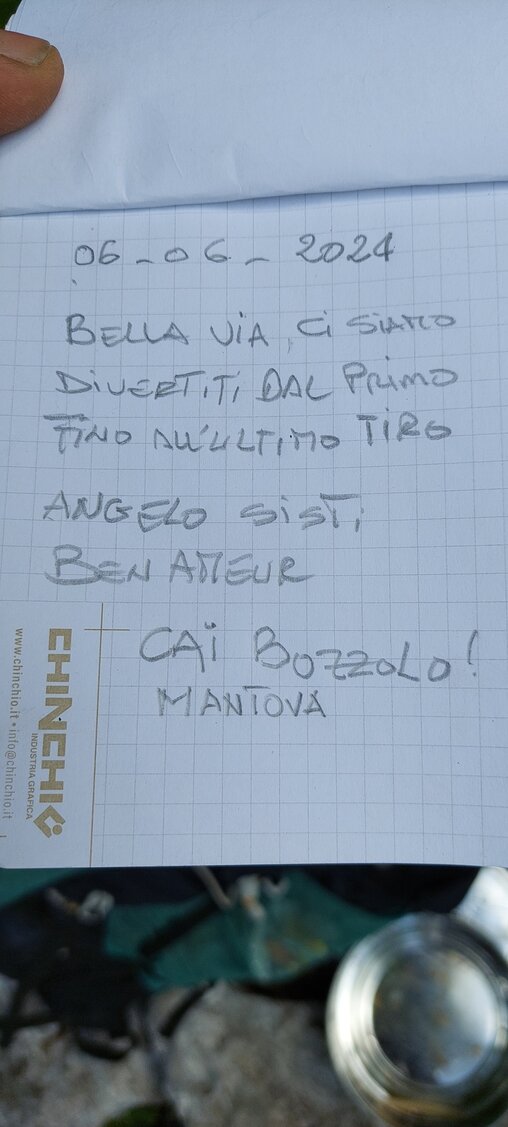 06-06-2024
BELLA VIA, Ci SIAMO
DIVERTITI DAL PRIMO
FINO ALL'ULTIMO TIRO
ANGELO SISTI
BEN AMEUR
CAI BOZZOLO!
MANTOVA
CHINCHIO
INDUSTRIA GRAFICA
www.chinchio.it • info@chinchio.it